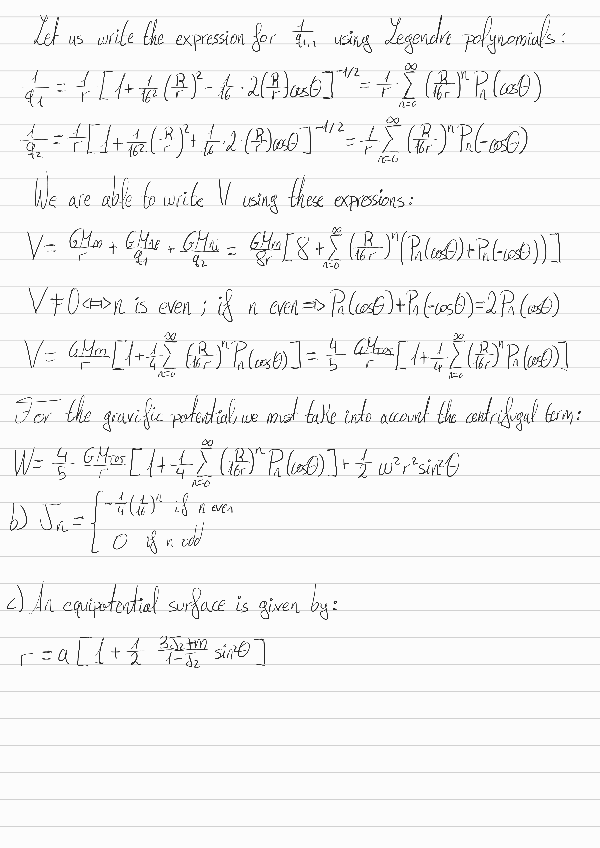 Let us write the expression for 1/q₁,₂ using Legendre polynomials:
1/q₁ = 1/r [1 + 1/16² (R/r)² - 1/16 · 2(R/r)cosθ]^(-1/2) = 1/r · ∑_{n=0}^∞ (R/16r)^n Pn(cosθ)
1/q₂ = 1/r [1 + 1/16² · (R/r)² + 1/16 · 2 · (R/r)cosθ]^(-1/2) = 1/r ∑_{n=0}^∞ (R/16r)^n Pn(-cosθ)
We are able to write V using these expressions:
V = GMm/r + GM/q₁ + GM/q₂ = GMm/8r [8 + ∑_{n=0}^∞ (R/16r)^n (Pn(cosθ) + Pn(-cosθ))]
V ≠ 0 ⟺ n is even ; if n even ⟹ Pn(cosθ) + Pn(-cosθ) = 2Pn(cosθ)
V = GMm/r [1 + 1/4 ∑_{n=0}^∞ (R/16r)^n Pn(cosθ)] = 4/5 · GM/r [1 + 1/4 ∑_{n=0}^∞ (R/16r)^n Pn(cosθ)]
For the gravific potential, we must take into account the centrifugal term:
W = 4/5 · GM/r [1 + 1/4 ∑_{n=0}^∞ (R/16r)^n Pn(cosθ)] + 1/2 ω²r²sin²θ
b) Jn = { -1/4 (1/16)^n if n even
0 if n odd
c) An equipotential surface is given by:
r = a [1 + 1/2 · (3J₂+m)/(1-J₂) sin²θ]